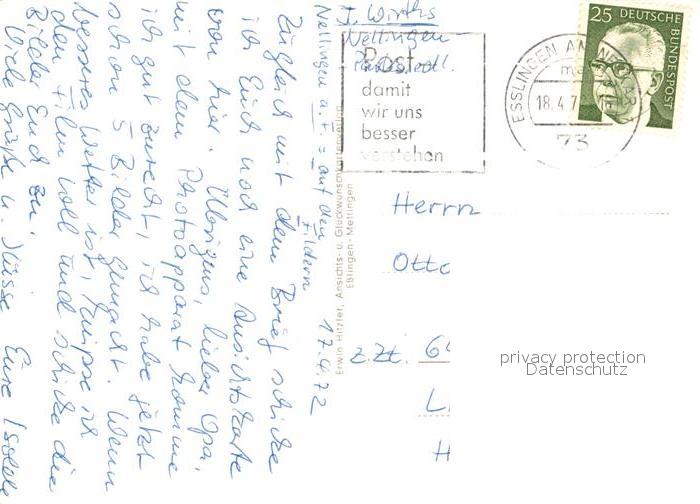 J. Wirths
Nellingen
Post –
damit
wir uns
besser
verstehen
25 DEUTSCHE BUNDESPOST
ESSLINGEN AM
18.4.7
73
Nellingen a.F. = auf den Fildern 17.4.72
Zugleich mit dem Brief schicke
ich Euch noch eine Ansichtskarte
von hier. Übrigens, lieber Opa,
mit dem Photoapparat komme
ich gut zurecht, ich habe jetzt
schon 5 Bilder gemacht. Wenn
besseres Wetter ist, knipse ich
den Film voll und schicke die
Bilder Euch zu.
Viele Grüße u. Küsse Eure Isolde
Erwin Hitzler, Ansichts- u. Glückwunschkartenverlag
Eßlingen-Mettingen
Herrn
Otto
z.Zt. 64
L
H
privacy protection
Datenschutz